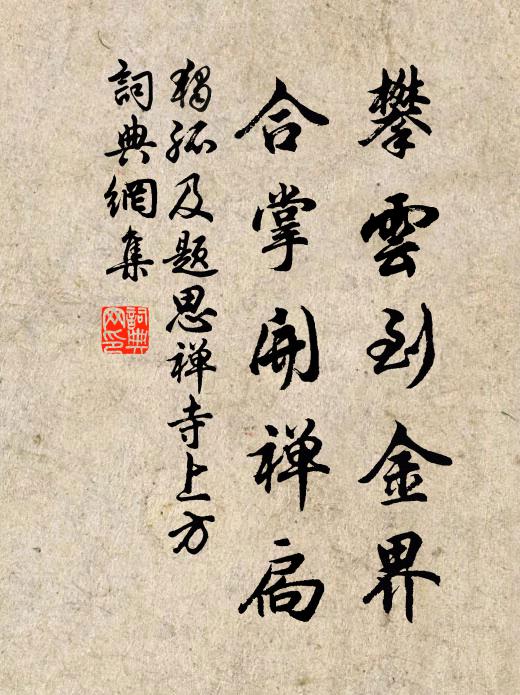 攀雲到金界
合掌開禅扃
獨孤及题思禅寺上方
詞典網集
詞典網印